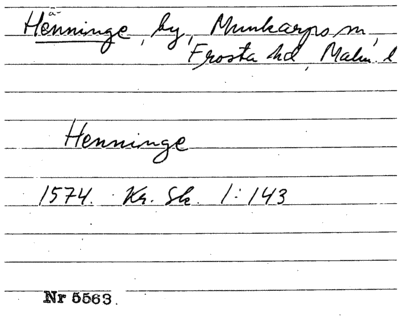 Henninge, by, Munkarps sn,
Frosta hd, Malm. l
Henninge
1574. Kr. Sk. 1:143
Nr 5563.